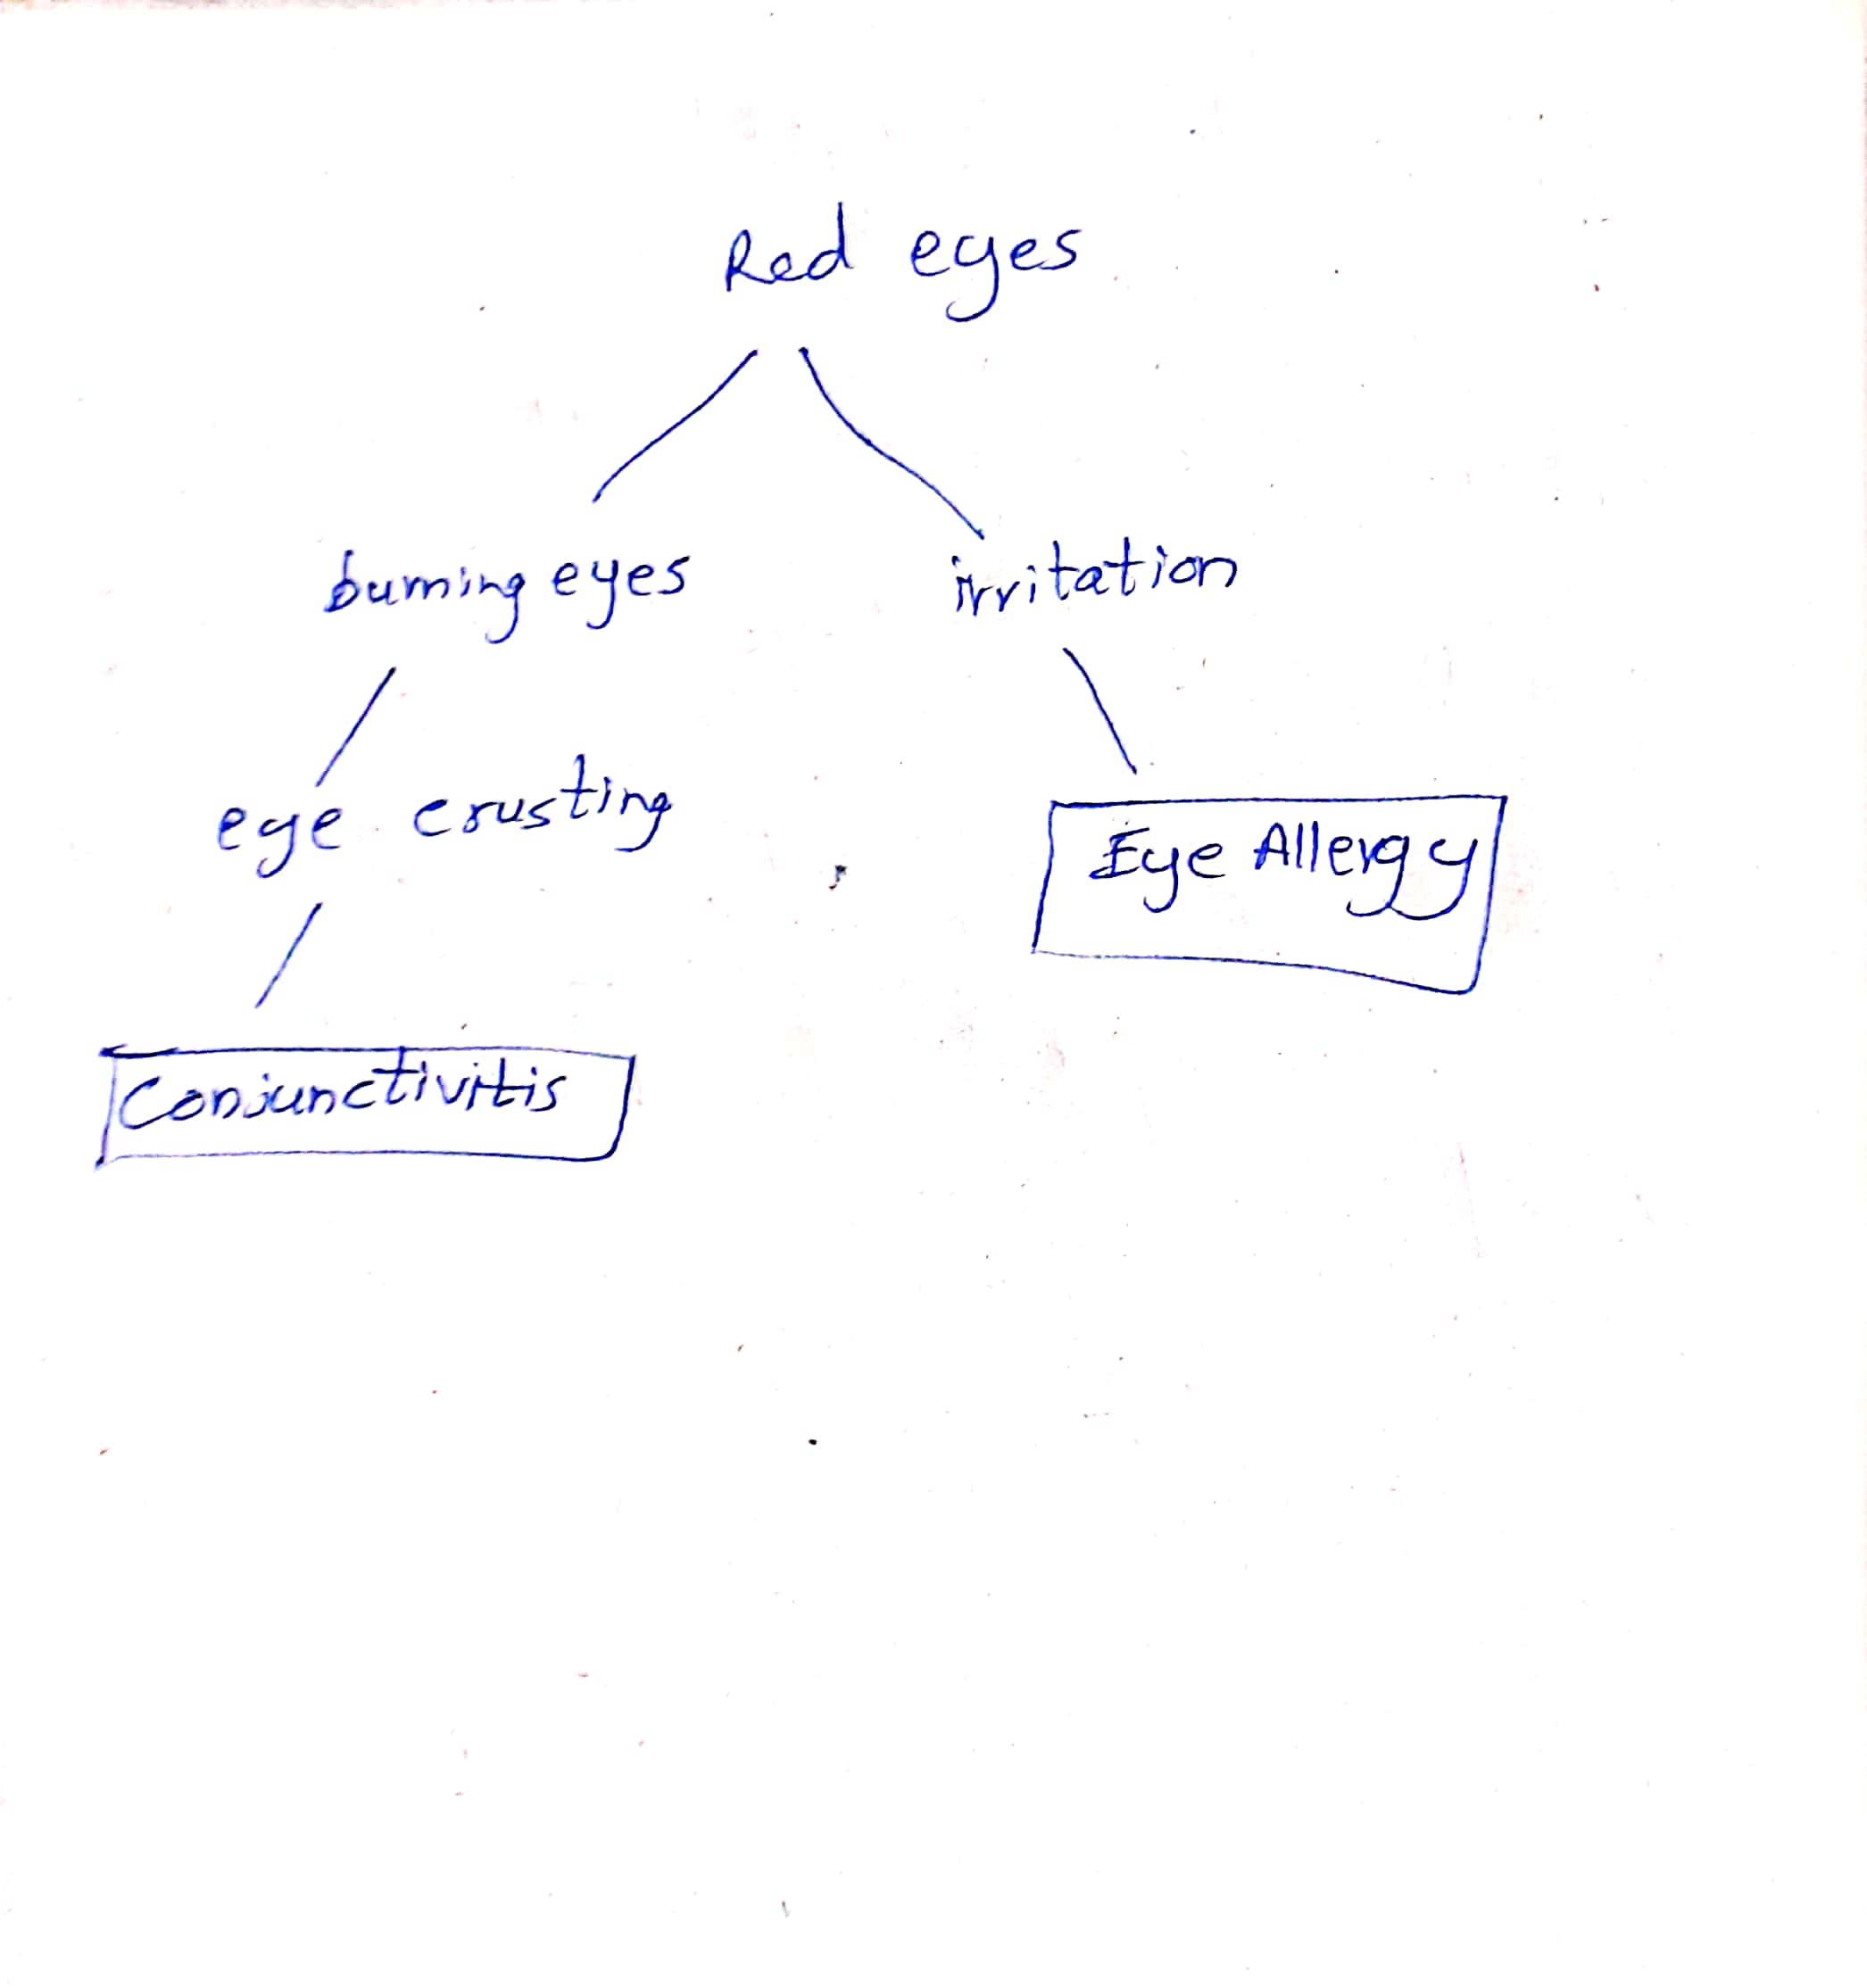 Red eyes
burning eyes
irritation
eye crusting
Eye Allergy
Conjunctivitis